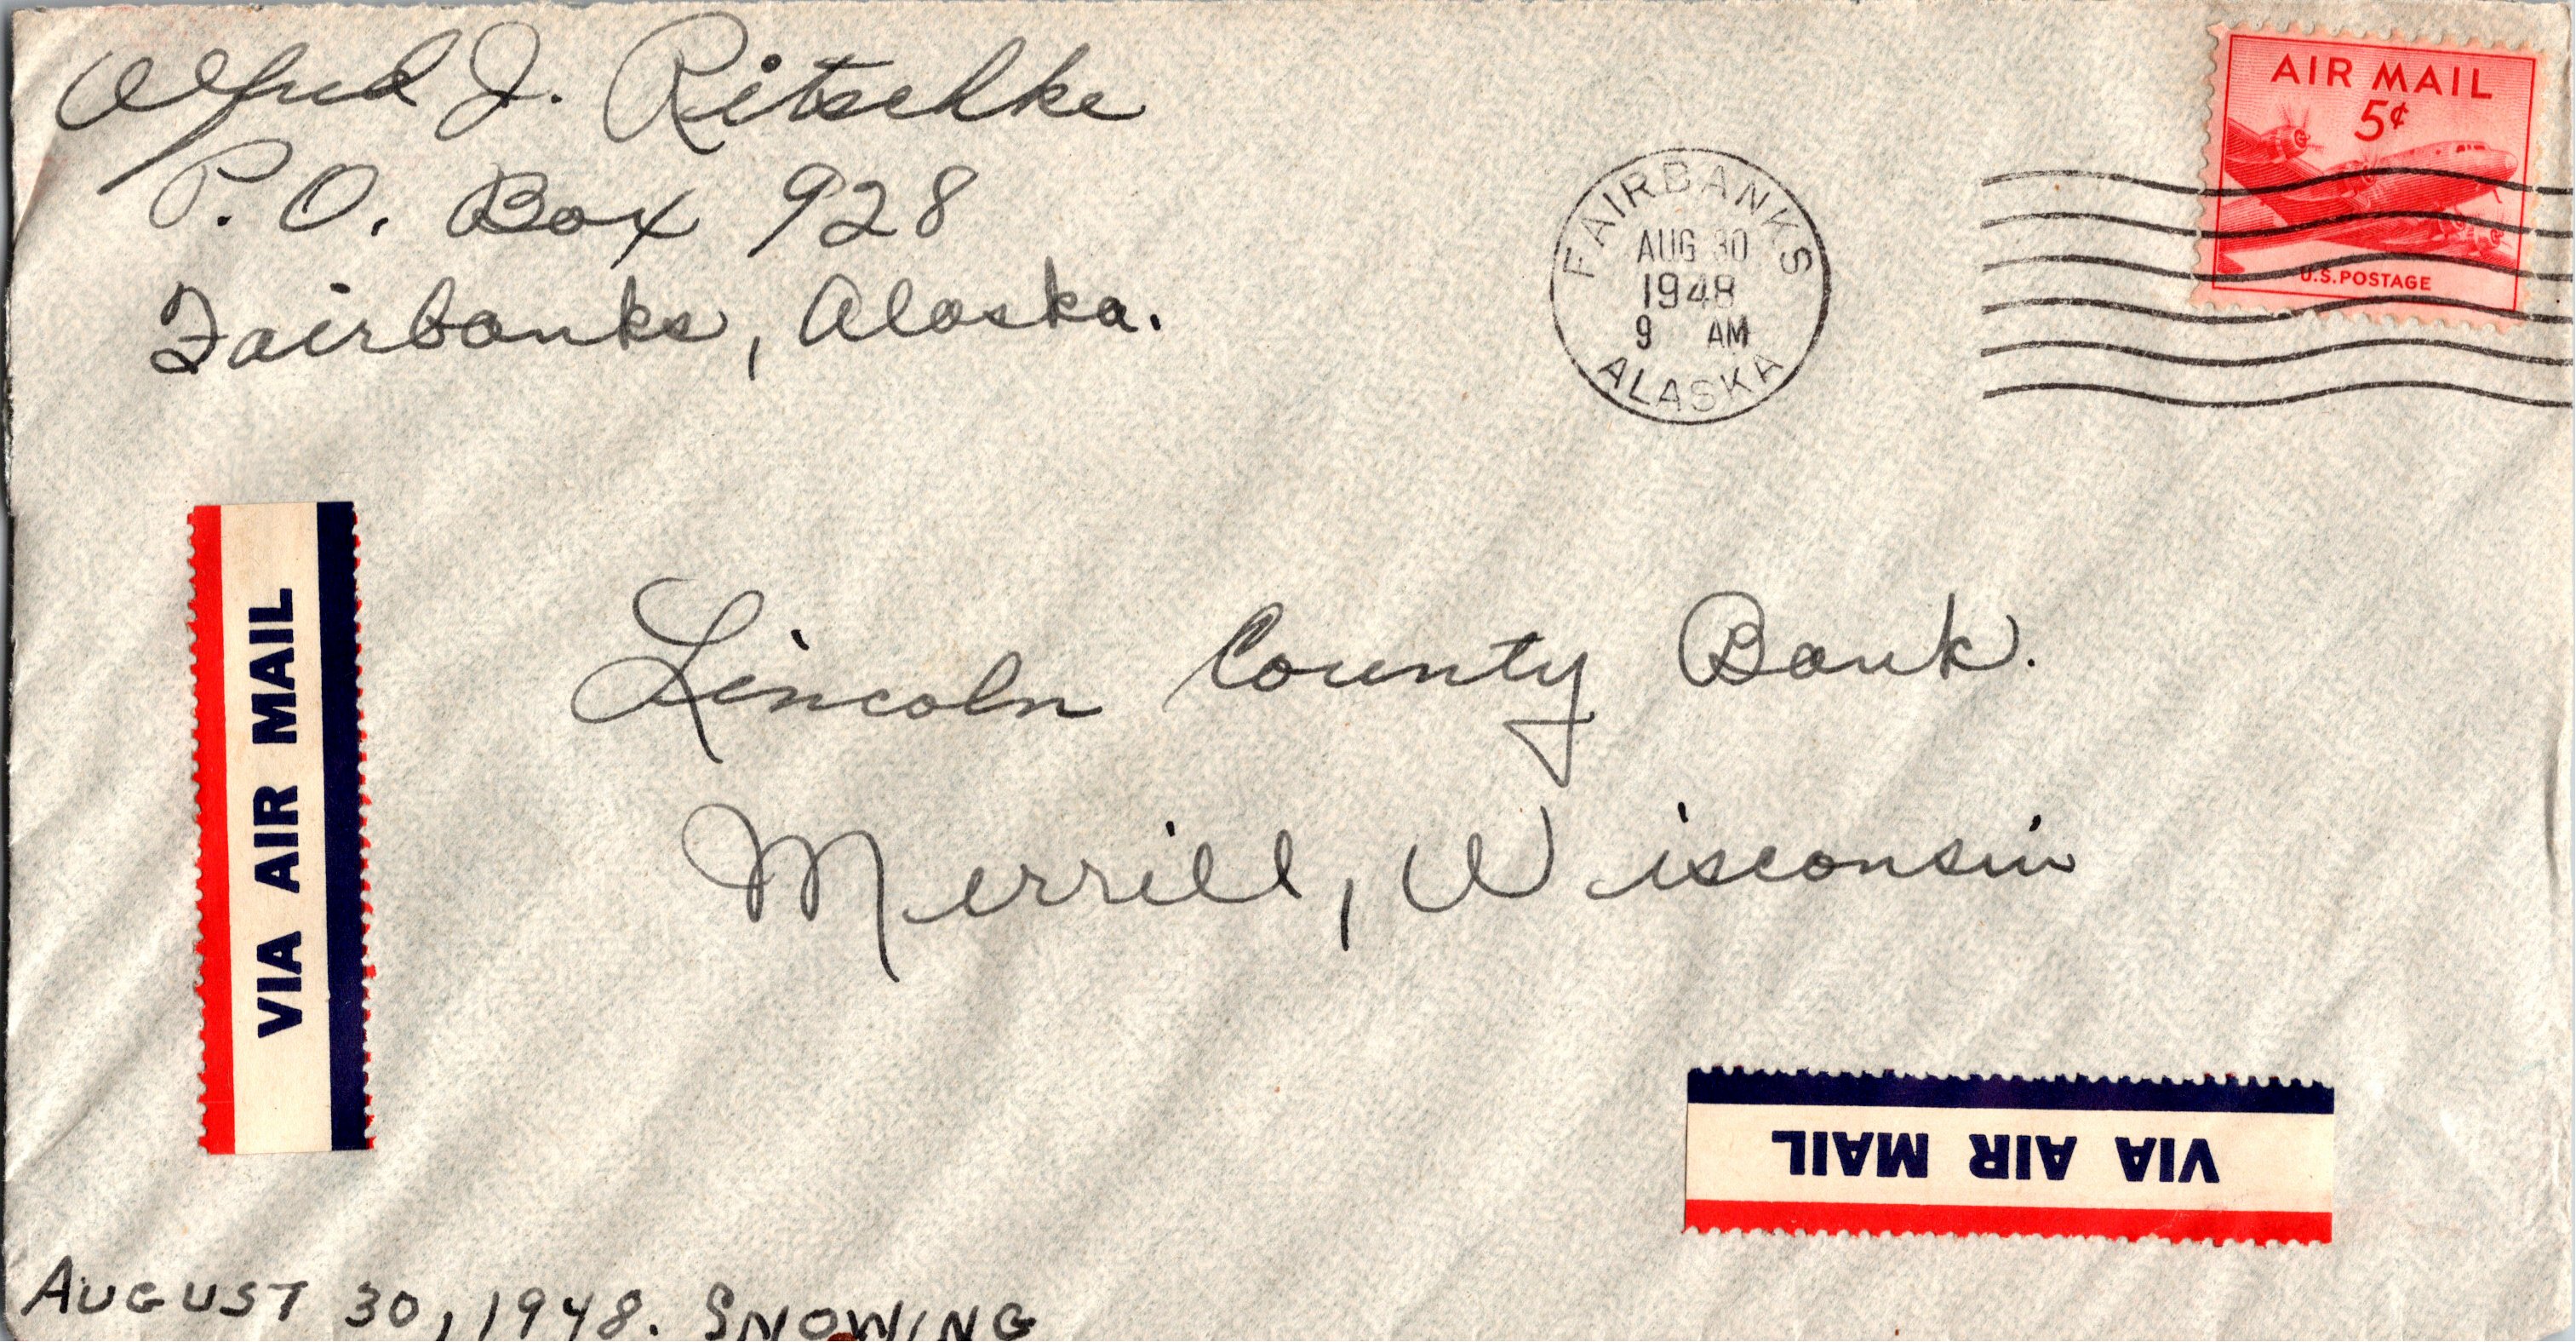 Alfred J. Ritschke
P.O. Box 928
Fairbanks, Alaska.
AIR MAIL
5¢
U.S. POSTAGE
FAIRBANKS
AUG 30
1948
9 AM
ALASKA
VIA AIR MAIL
Lincoln County Bank.
Merrill, Wisconsin
VIA AIR MAIL
AUGUST 30, 1948. SNOWING